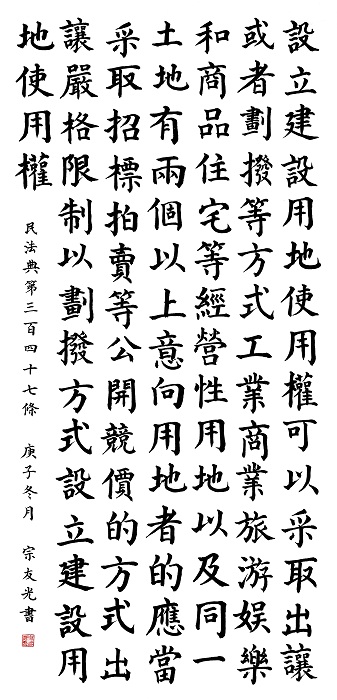 設立建設用地使用權可以采取出讓
或者劃撥等方式工業商業旅游娛樂
和商品住宅等經營性用地以及同一
土地有兩個以上意向用地者的應當
采取招標拍賣等公開競價的方式出
讓嚴格限制以劃撥方式設立建設用
地使用權
民法典第三百四十七條 庚子冬月 宗友光書